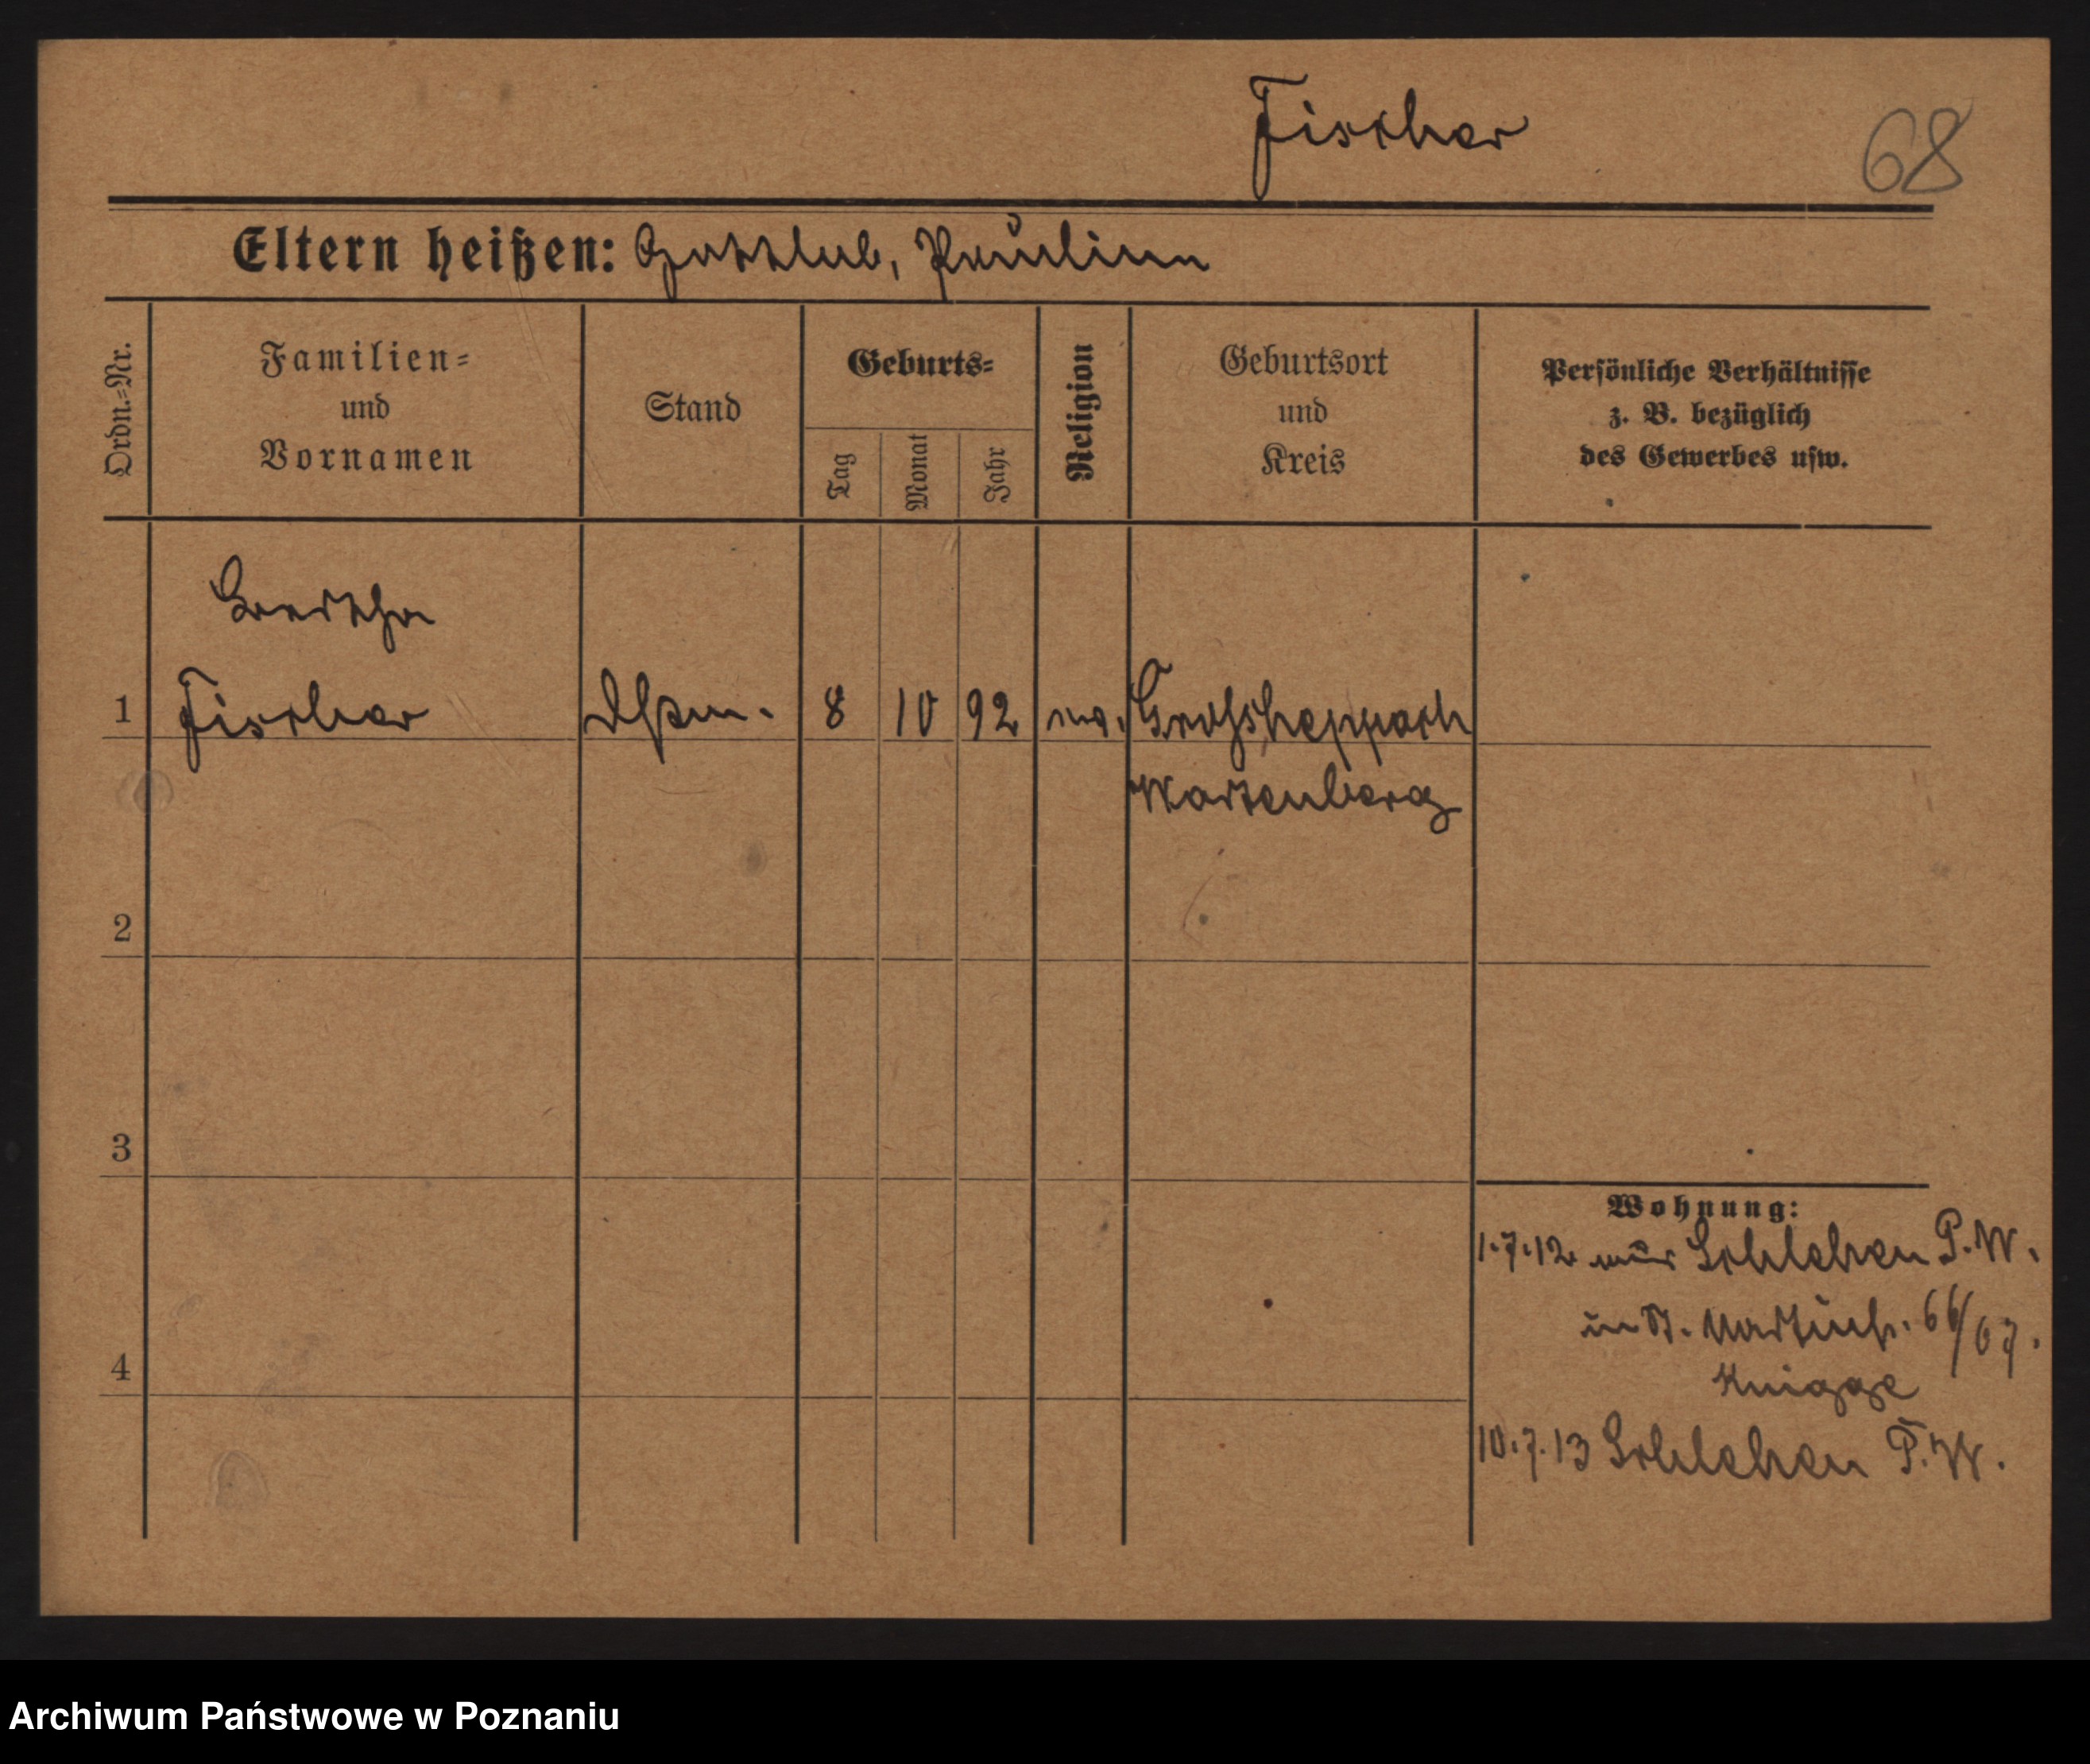 Fischer
68
Eltern heißen: Gottlieb, Pauline
Ordn.=Nr.
Familien=
und
Vornamen
Stand
Geburts=
Tag
Monat
Jahr
Religion
Geburtsort
und
Kreis
Persönliche Verhältnisse
z. B. bezüglich
des Gewerbes usw.
Bertha
1 Fischer 8 10 92 Grossheppach
2
3
4
Wohnung:
1.7.12 P.W.
in St. Martinstr. 66/67.
Knigge
10.7.13 P.W.
Archiwum Państwowe w Poznaniu